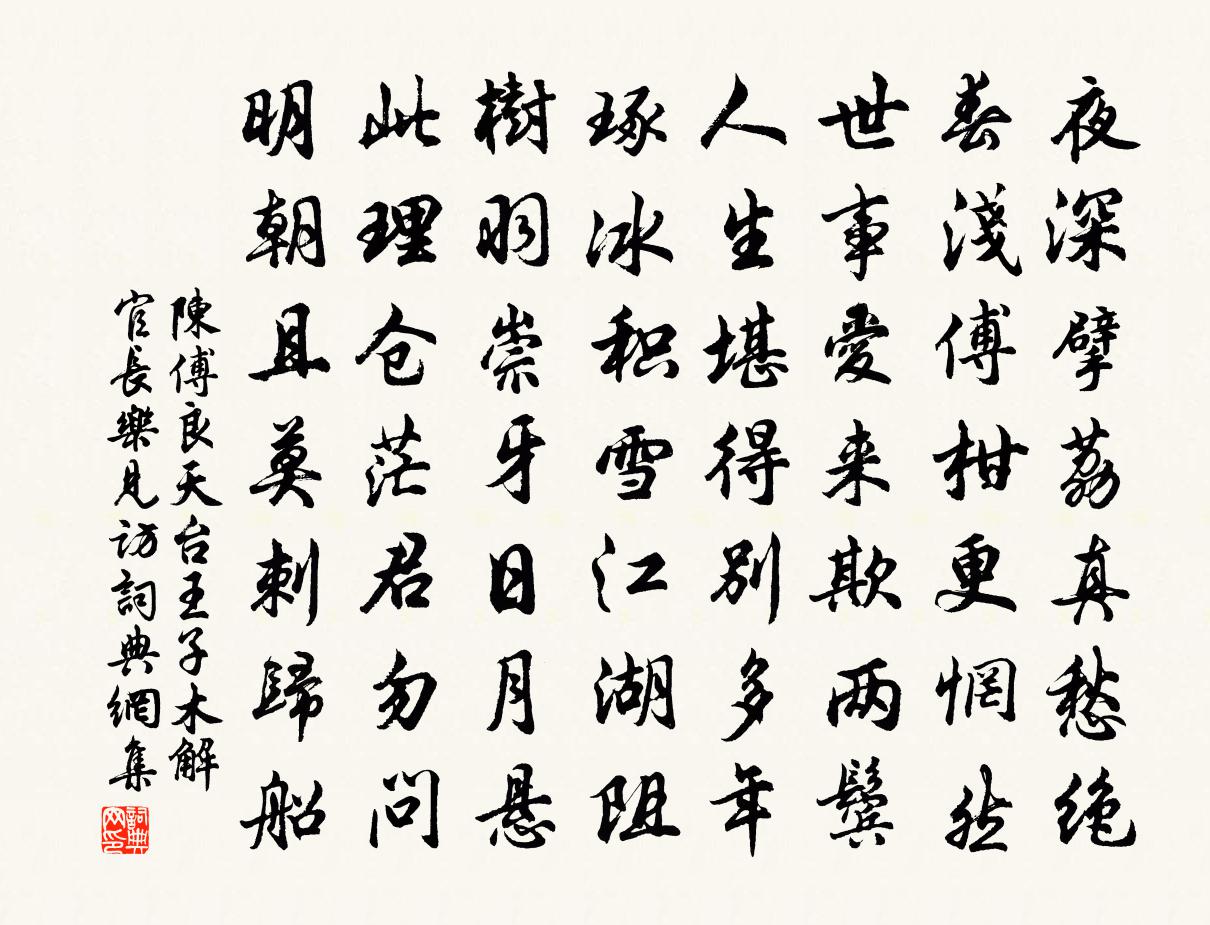 夜深擘荔真愁绝
春淺傅柑更惘然
世事愛来欺两鬓
人生堪得别多年
琢冰积雪江湖阻
樹羽崇牙日月悬
此理仓茫君勿问
明朝且莫刺歸船
陳傅良天台王子木解
官長樂見访詞典網集
詞典
网印